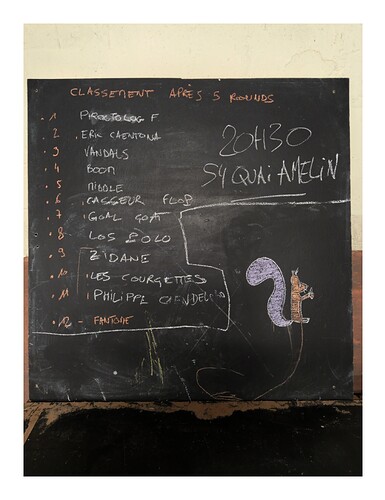 CLASSEMENT APRÈS 5 ROUNDS
1 F
2 ERIC CAENTONA
3 VANDALS
4 BOOM
5 MIDDLE
6 CASSEUR FLOP
7 GOAL GOAT
8 LOS POLO
9 ZIDANE
10 LES COURGETTES
11 PHILIPPE
12 - FANTOME
20H30
54 QUAI AMELIN